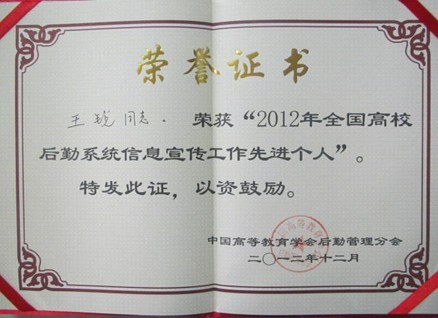 荣誉证书
王锐同志. 荣获“2012年全国高校
后勤系统信息宣传工作先进个人”。
特发此证，以资鼓励。
中国高等教育学会后勤管理分会
二〇一二年十二月